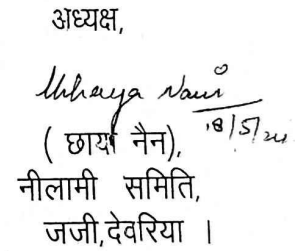 अध्यक्ष,
Chhaya Nain
18/5/24
( छाया नैन),
नीलामी समिति,
जजी,देवरिया ।